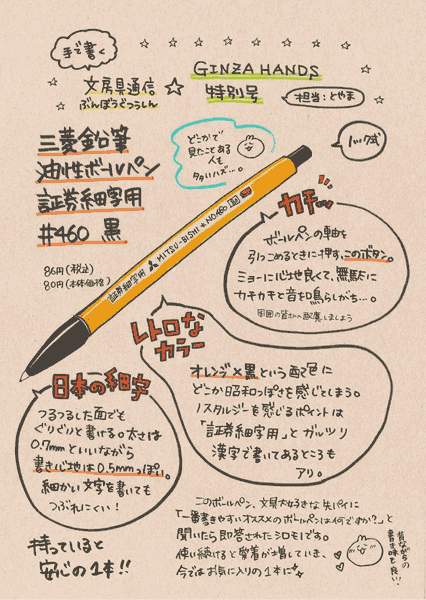 手で書く
文房具通信
ぶんぼうぐつうしん
GINZA HANDS
特別号
担当：とやま
三菱鉛筆
油性ボールペン
証券細字用
#460 黒
86円(税込)
80円(本体価格)
どこかで
見たことある
人も
多いハズ…。
ノック式
証券細字用 MITSU-BISHI NO.460
カチッ
ボールペンの軸を
引っこめるときに押す、このボタン。
ミョーに心地良くて、無駄に
カチカチと音を鳴らしがち…。
周囲の皆さんへ配慮しましょう
レトロな
カラー
オレンジ×黒という配色に
どこか昭和っぽさを感じてしまう。
ノスタルジーを感じるポイントは
「証券細字用」とガッツリ
漢字で書いてあるところも
アリ。
日本の細字
つるつるした面でも
ぐりぐりと書ける。太さは
0.7mmといいながら
書き心地は0.5mmっぽい。
細かい文字を書いても
つぶれにくい！
持っていると
安心の1本!!
このボールペン、文具大好きな先パイに
「一番書きやすいオススメのボールペンは何ですか？」と
聞いたら即答されたシロモノです。
使い続けると愛着が増していき、
今ではお気に入りの1本に
昔ながらの
書き味も良い！